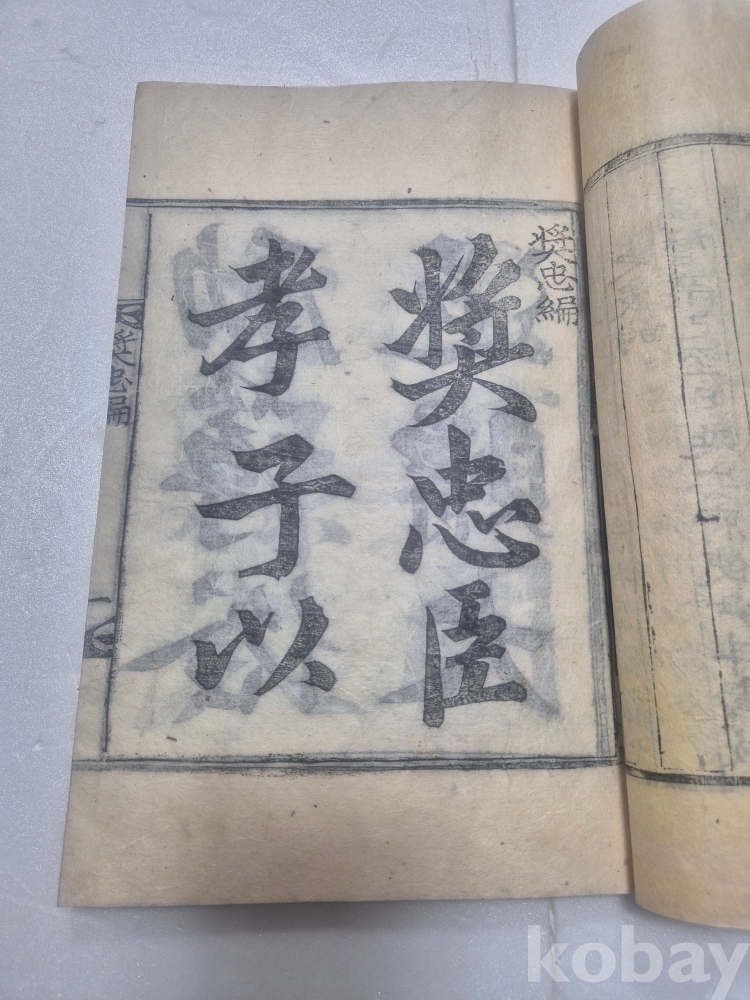 奬忠編
奬忠臣
孝子以
奬忠編
二
kobay